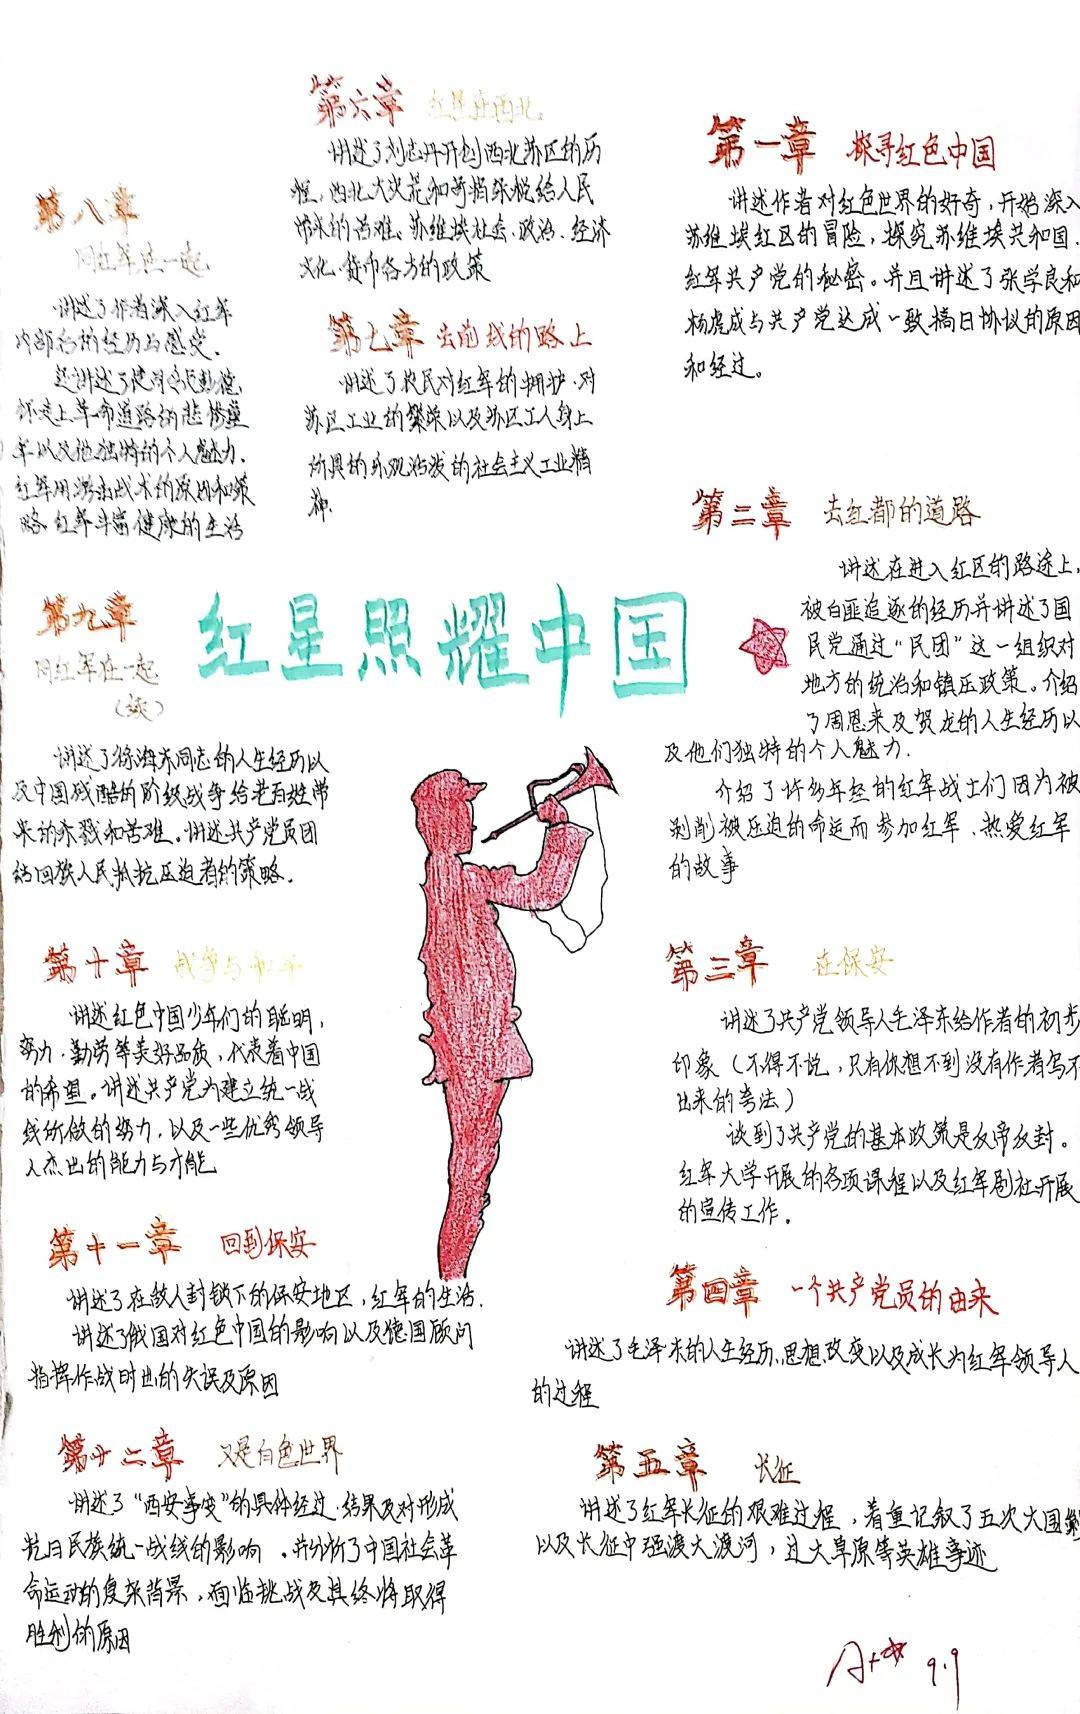 红星照耀中国
第一章 探寻红色中国
讲述作者对红色世界的好奇，开始深入
苏维埃红区的冒险，探究苏维埃共和国.
红军共产党的秘密。并且讲述了张学良和
杨虎成与共产党达成一致搞日协议的原因
和经过。
第二章 去红都的道路
讲述在进入红区的路途上，
被白匪追逐的经历并讲述了国
民党通过“民团”这一组织对
地方的统治和镇压政策。介绍
了周恩来及贺龙的人生经历以
及他们独特的个人魅力.
介绍了许多年轻的红军战士们因为被
剥削被压迫的命运而参加红军、热爱红军
的故事
第三章 在保安
讲述了共产党领导人毛泽东给作者的初步
印象（不得不说，只有你想不到没有作者写不
出来的夸法）
谈到了共产党的基本政策是反帝反封。
红军大学开展的各项课程以及红军剧社开展
的宣传工作。
第四章 一个共产党员的由来
讲述了毛泽东的人生经历、思想改变以及成长为红军领导人
的过程
第五章 长征
讲述了红军长征的艰难过程，着重记叙了五次大围剿
以及长征中强渡大渡河，过大草原等英雄事迹
第六章 红星在西北
讲述了刘志丹开创西北苏区的历
程、西北大灾荒和苛捐杂税给人民
带来的苦难、苏维埃社会、政治、经济
文化、货币各方的政策
第七章 去前线的路上
讲述了农民对红军的拥护、对
苏区工业的繁荣以及苏区工人身上
所具的乐观活泼的社会主义工业精
神.
第八章
同红军在一起
讲述了作者深入红军
内部后的经历与感受.
还讲述了彭德
怀走上革命道路的悲惨童
年以及他独特的个人魅力.
红军用游击战术的原因和策
略、红军丰富健康的生活
第九章
同红军在一起
（续）
讲述了徐海东同志的人生经历以
及中国残酷的阶级战争给老百姓带
来的杀戮和苦难。讲述共产党员团
结回族人民抵抗压迫者的策略.
第十章 战争与和平
讲述红色中国少年们的聪明，
努力、勤劳等美好品质，代表着中国
的希望。讲述共产党为建立统一战
线所做的努力，以及一些优秀领导
人杰出的能力与才能
第十一章 回到保安
讲述了在敌人封锁下的保安地区，红军的生活.
讲述了俄国对红色中国的影响以及德国顾问
指挥作战时出的失误及原因
第十二章 又是白色世界
讲述了“西安事变”的具体经过、结果及对形成
抗日民族统一战线的影响，并分析了中国社会革
命运动的复杂背景、面临挑战及其终将取得
胜利的原因
A+
9.9